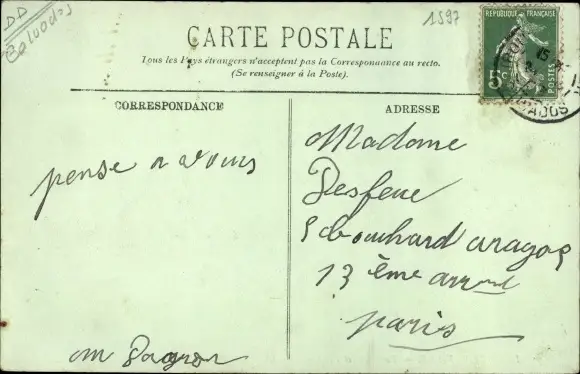 DD
Calvados
1597
CARTE POSTALE
Tous les Pays étrangers n'acceptent pas la Correspondance au recto.
(Se renseigner à la Poste).
REPUBLIQUE FRANÇAISE
5c
POSTES
15
ADOS
CORRESPONDANCE
pense a vous
ADRESSE
Madame
Desfeue
5 bouchard aragos
13 ème arrond
paris